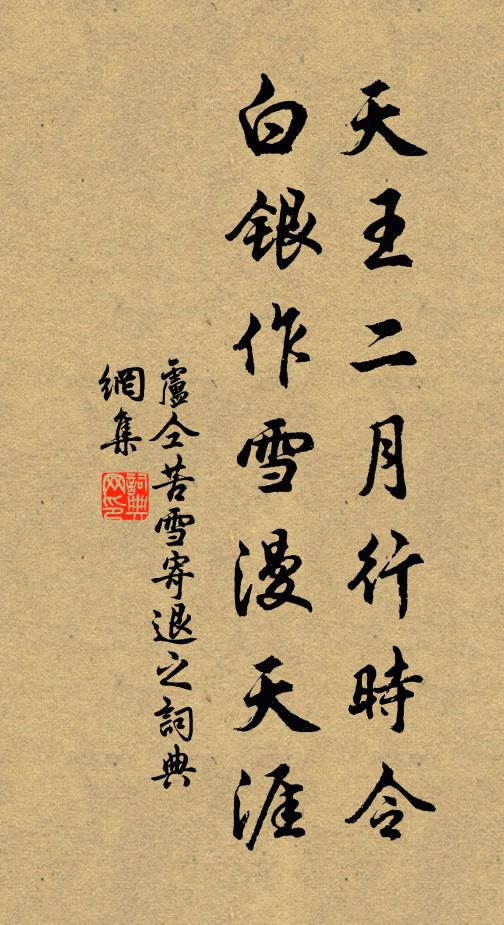 天王二月行時令
白銀作雪漫天涯
盧仝苦雪寄退之詞典
網集
詞典
网印